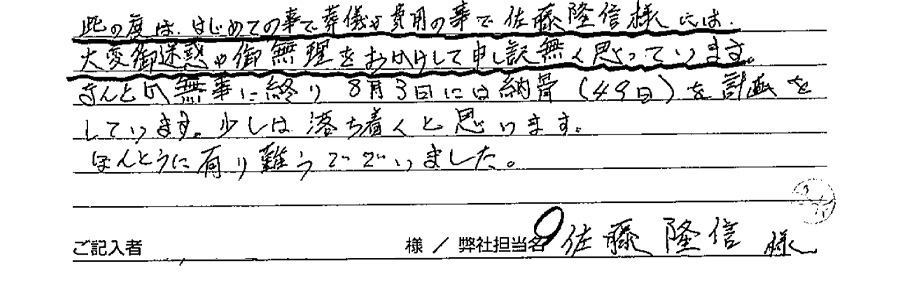 此の度は、はじめての事で葬儀や費用の事で佐藤隆信様には、
大変御迷惑や御無理をおかけして申し訳無く思っています。
なんとか無事に終り8月3日には納骨(49日)を計画を
しています。少しは落ち着くと思います。
ほんとうに有り難うございました。
ご記入者 様 / 弊社担当名 佐藤隆信 様